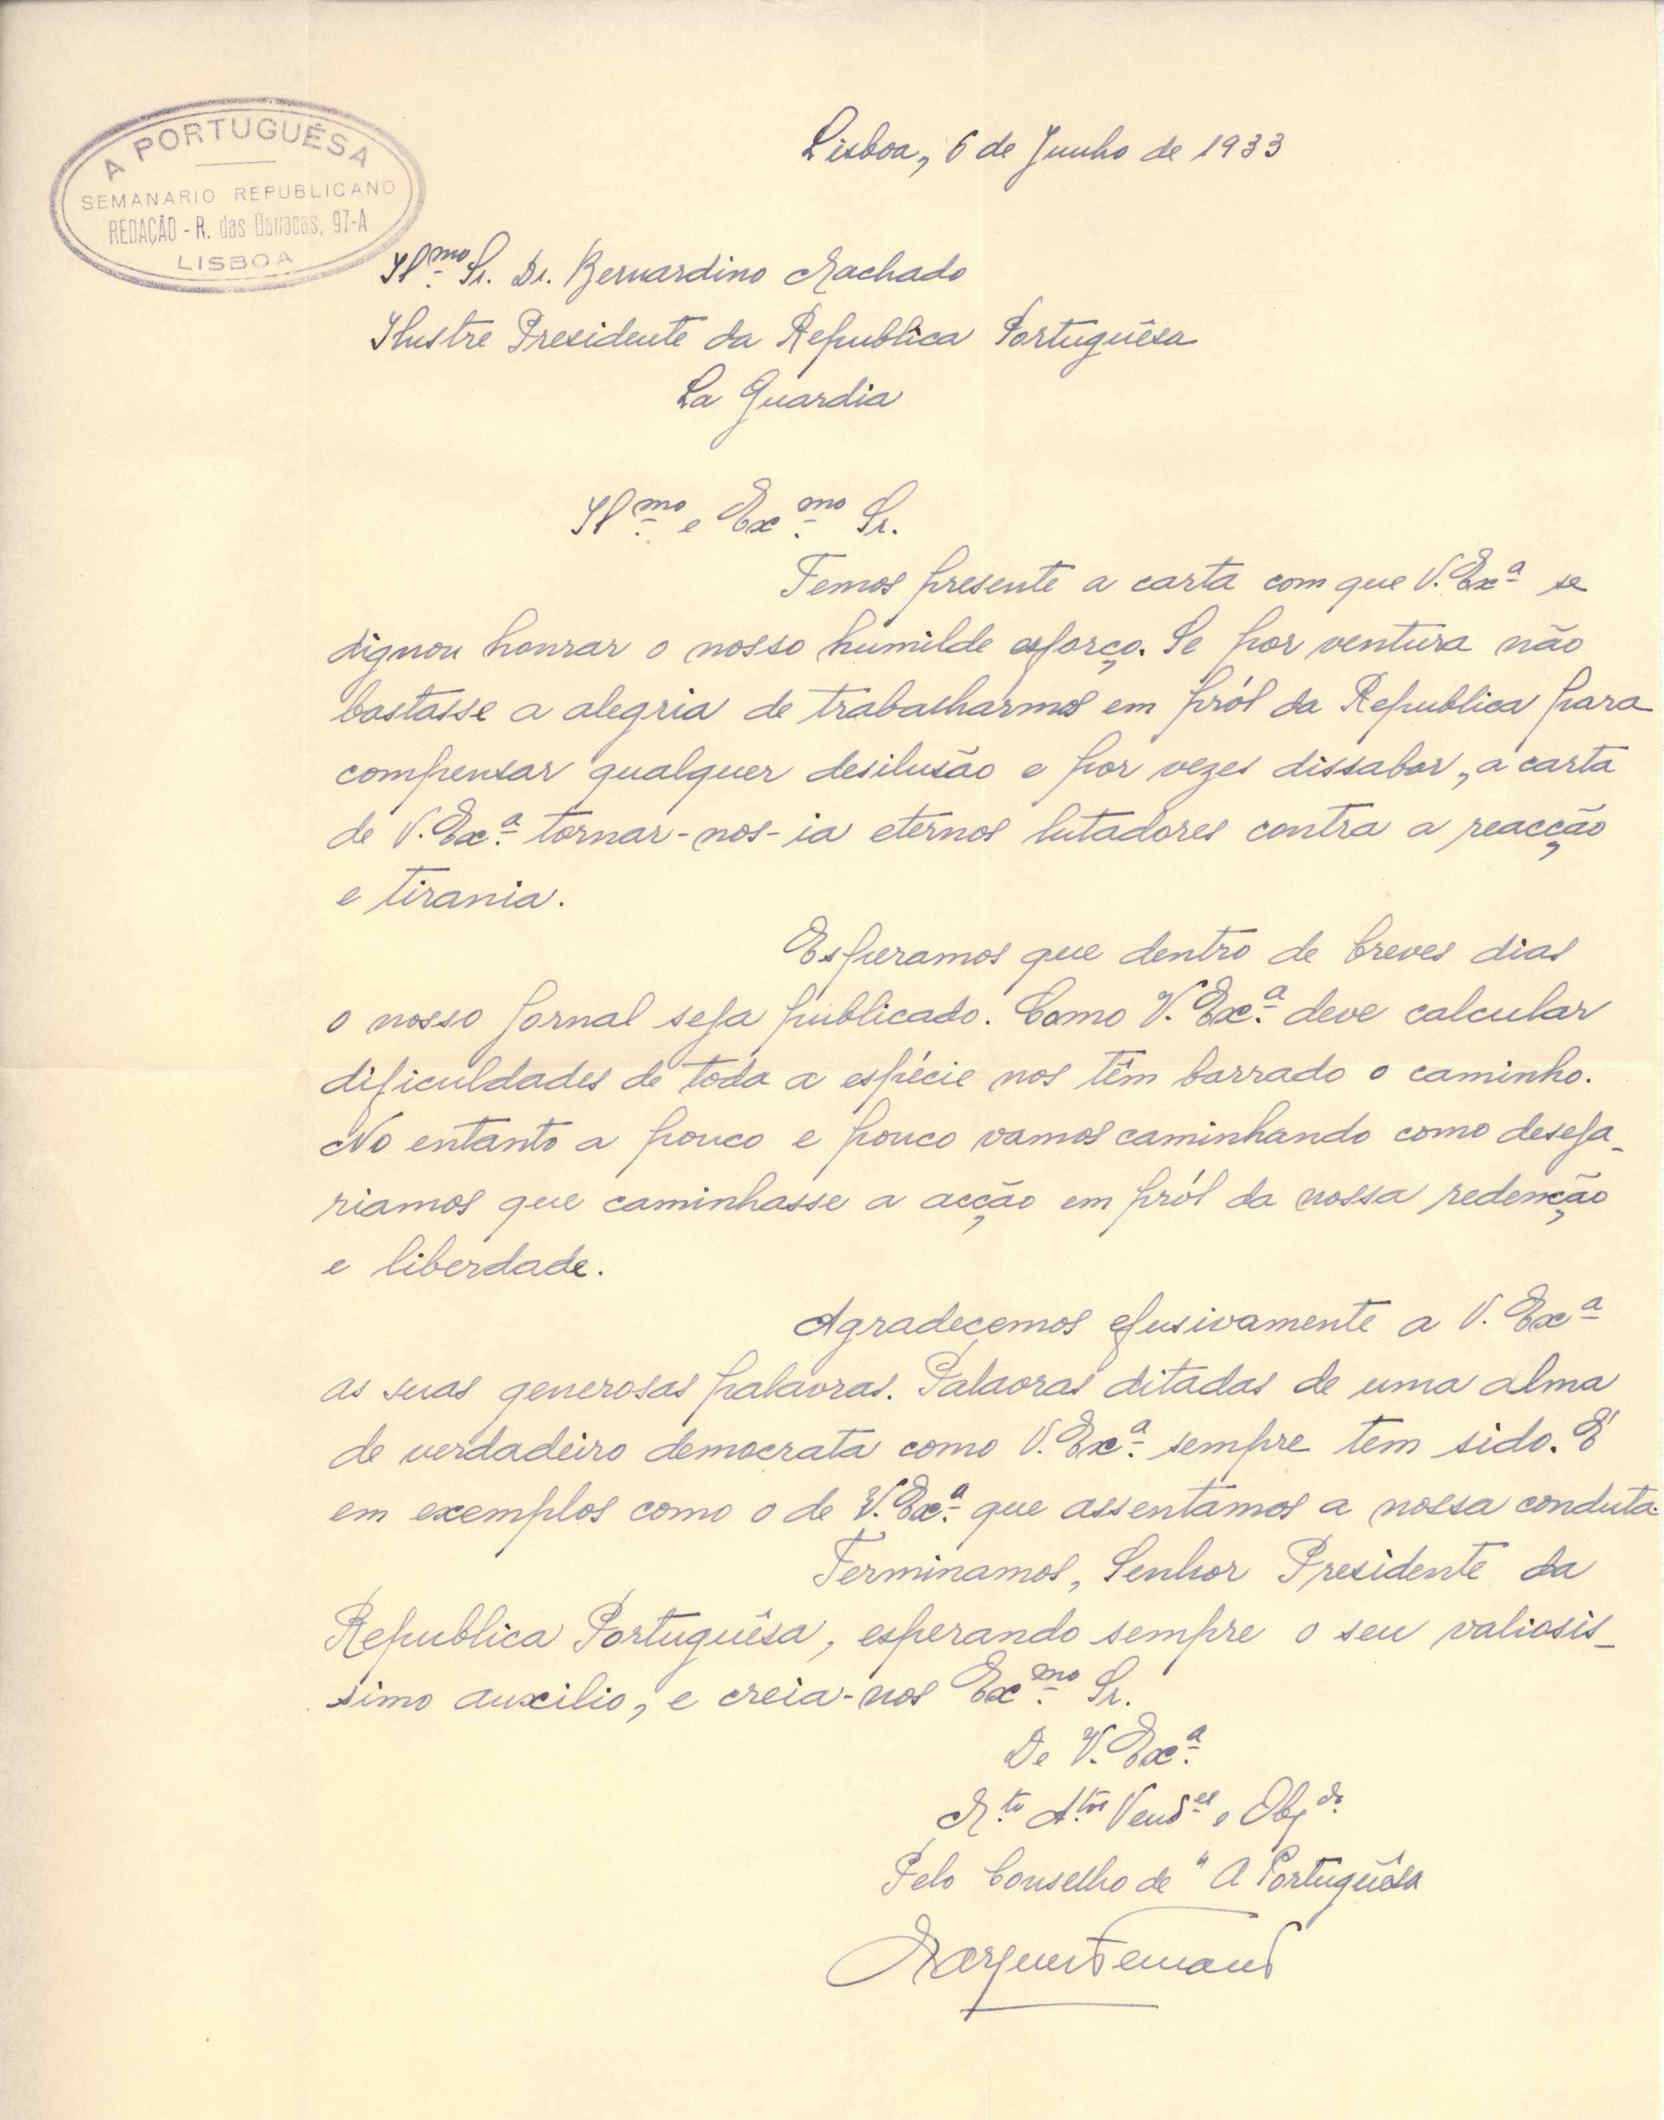 A PORTUGUÊSA
SEMANARIO REPUBLICANO
REDAÇÃO - R. das 97-A
LISBOA
Lisboa, 6 de Junho de 1933
Il.mo Sr. Dr. Bernardino Machado
Ilustre Presidente da Republica Portuguêsa
La Guardia
Il.mo e Ex.mo Sr.
Temos presente a carta com que V. Ex.ª se
dignou honrar o nosso humilde esforço. Se por ventura não
bastasse a alegria de trabalharmos em pról da Republica para
compensar qualquer desilusão e por vezes dissabor, a carta
de V. Ex.ª tornar-nos-ia eternos lutadores contra a reacção
e tirania.
Esperamos que dentro de breves dias
o nosso jornal seja publicado. Como V. Ex.ª deve calcular
dificuldades de toda a espécie nos têm barrado o caminho.
No entanto a pouco e pouco vamos caminhando como deseja-
riamos que caminhasse a acção em pról da nossa redenção
e liberdade.
Agradeçemos efusivamente a V. Ex.ª
as suas generosas palavras. Palavras ditadas de uma alma
de verdadeiro democrata como V. Ex.ª sempre tem sido. É
em exemplos como o de V. Ex.ª que assentamos a nossa conduta.
Terminamos, Senhor Presidente da
Republica Portuguêsa, esperando sempre o seu valiosis-
simo auxilio, e creia-nos Ex.mo Sr.
De V. Ex.ª
M.to A.tos Vend.es e Obg.do
Pelo Conselho de "A Portuguêsa